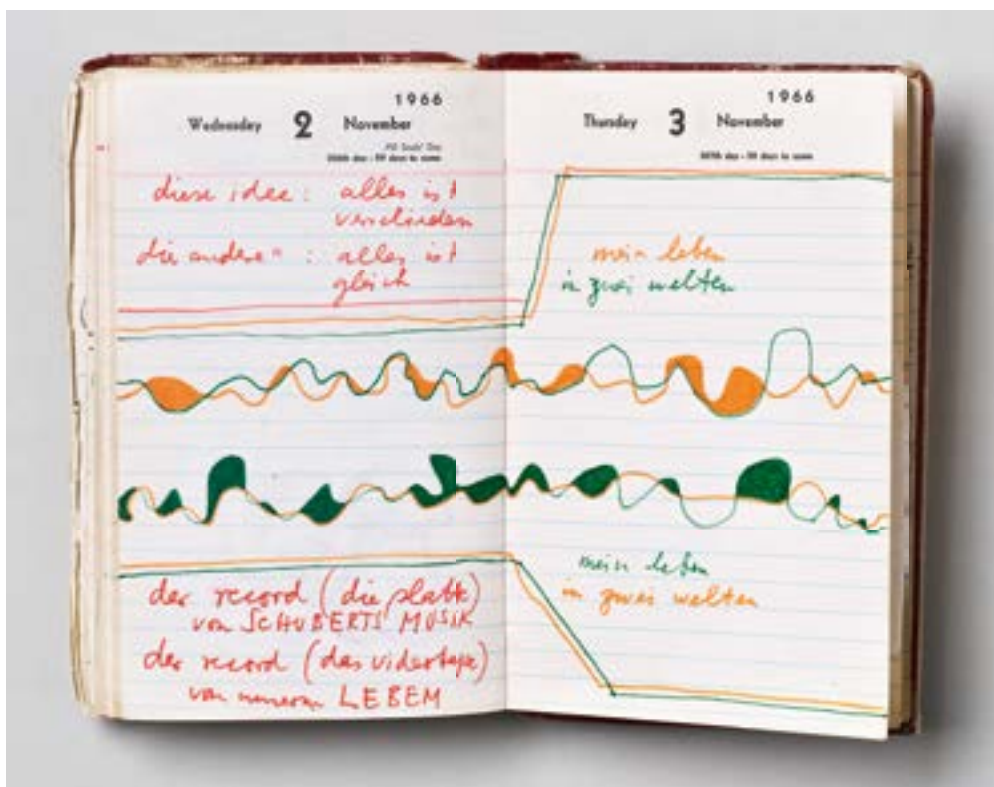 1966
Wednesday 2 November
All Souls' Day
306th day - 59 days to come
diese idee: alles ist
verschieden
die andere": alles ist
gleich
der record (die platte)
von SCHUBERTS MUSIK
der record (das videotape)
von meinem LEBEM
1966
Thursday 3 November
307th day - 58 days to come
mein leben
in zwei welten
mein leben
in zwei welten